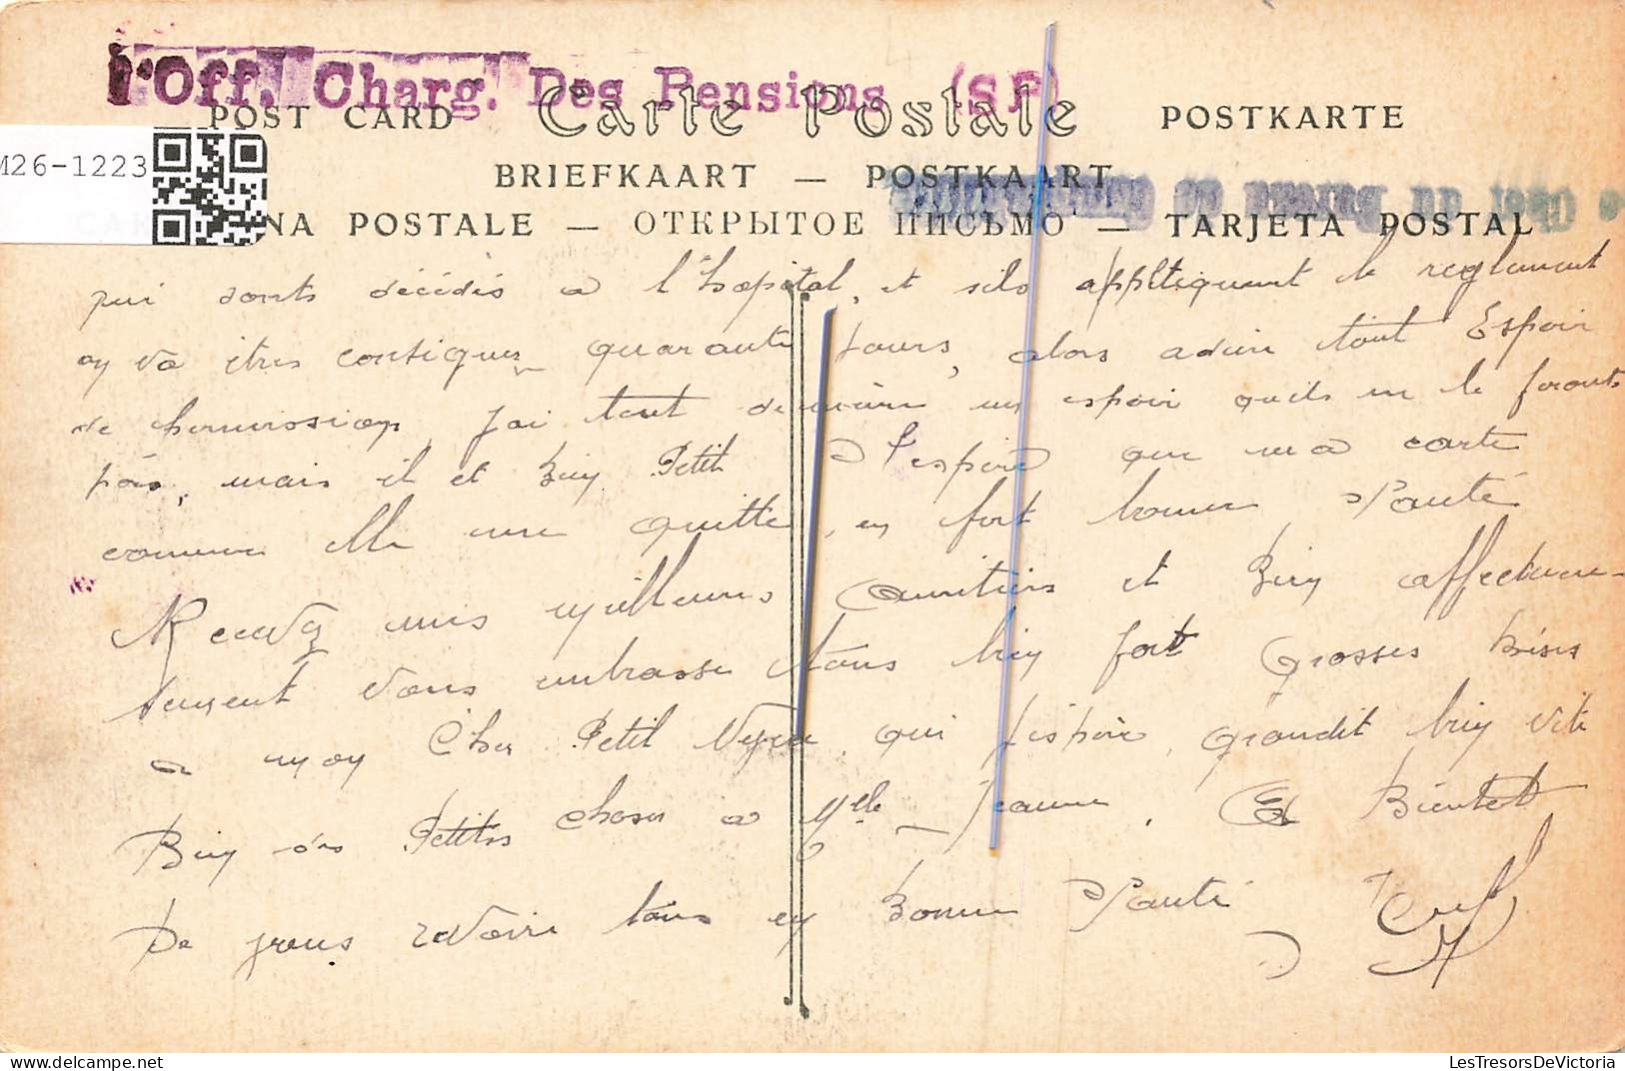 l'Off. Charg. Des Pensions (SP)
POST CARD Carte Postale POSTKARTE
M26-1223
BRIEFKAART — POSTKAART
NA POSTALE — ОТКРЫТОЕ ПИСЬМО — TARJETA POSTAL
qui sonts décédés a l'hopital, et sils appltiquent le reglement
on va êtres consigner quarante jours, alors adieu tout Espoir
de permission, j'ai tout de même un espoir quils ne le feronts
pas, mais il et bien Petit. J'espere que ma carte
comme elle me quitte, en fort bonne Santé
Recevez mes meilleures amitiers et bien affectueu-
sement vous embrasse tous bien fort Grosses bises
a mon Cher Petit Neveu, qui j'espère, grandit bien vite
Bien des Petites choses a Mlle Jeanne. A Bientot
De vous revoire tous en Bonne Santé
LesTresorsDeVictoria